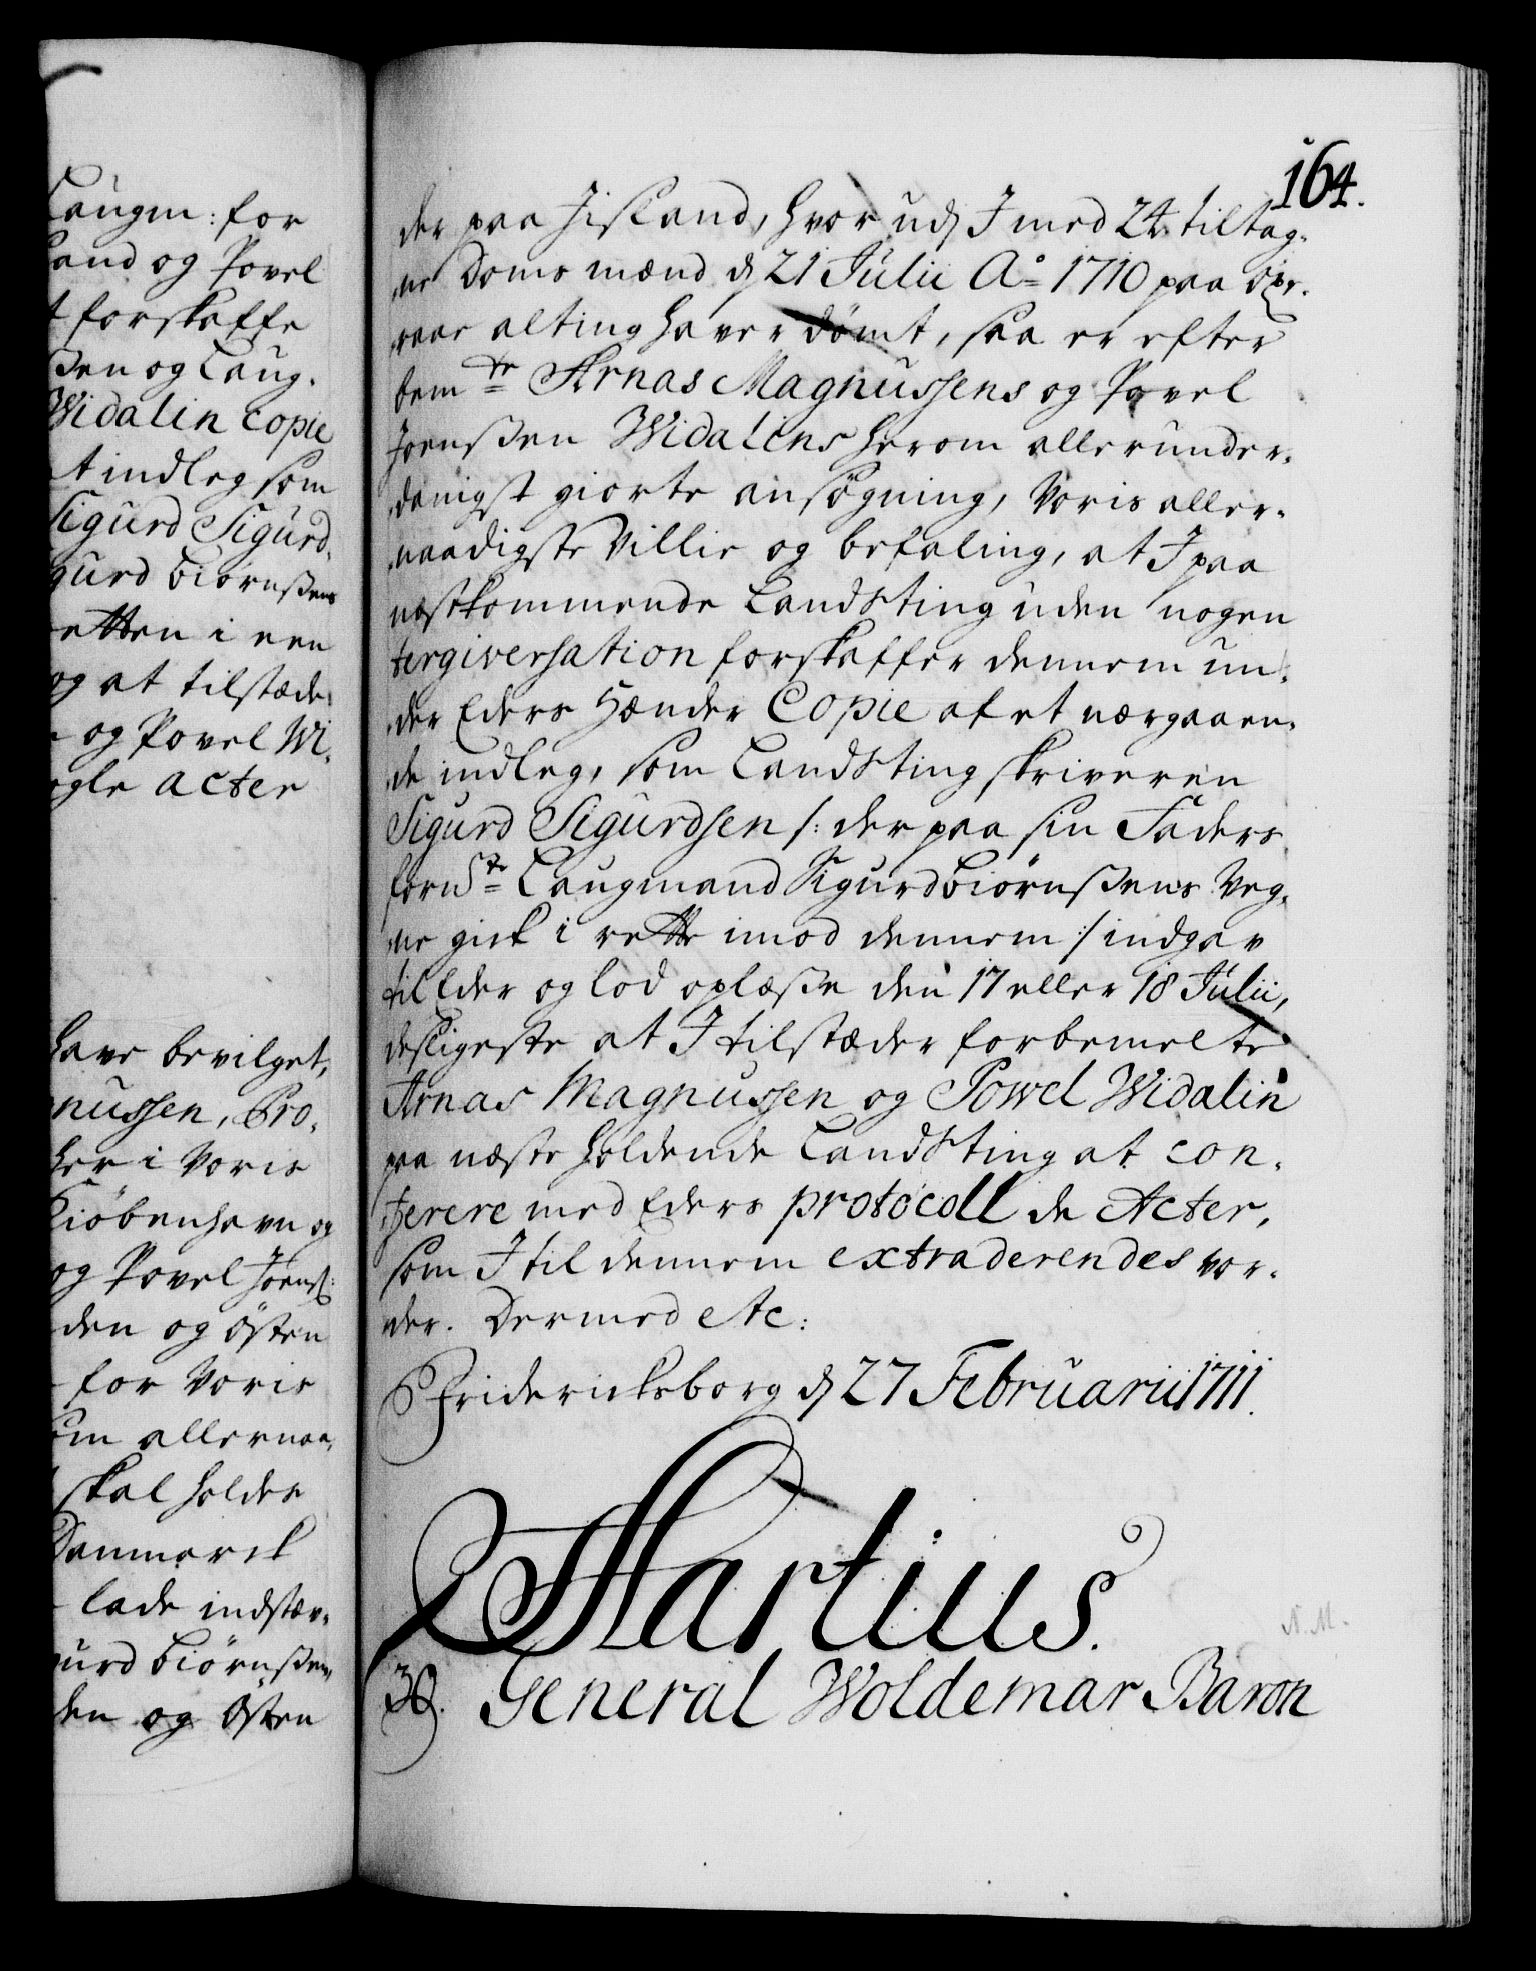 Laugm: for
land og Povel
t forskaffe
ßen og Laug.
Widalin Copie
et indleg som
Sigurd Sigurd.
gurd Biørnßens
retten i een
og at tilstæde,
og Povel Wi,
ogle Acter
have bevilget,
nussen, Pro,
her i Voris
Kiøbenhavn og
og Povel Joensſ:
den og Østen
for Voris
som allernaa,
skal holdes
Danmarck
lade indstæv,
urd Biørnßen,
den og Østen
164.
der paa Jisland, hvor udj I med 24 tiltag,
ne Doms mænd dj 21 Julii A° 1710 paa Øxe,
raae alting haver dømt, saa er efter
bem te Arnas Magnussens og Povel
Joensßen Widalins herom allerunder,
danigst giorte ansøgning, Voris aller,
naadigste Villie og befaling, at I paa
næstkommende Landsting uden nogen
tergiversation forskaffer dennem un,
der Eders Hænder Copie af et nærgaaen,
de indleg, som Landsting skriveren
Sigurd Sigurdsen /: der paa sin Faders
fornte Laugmand Sigurd Biørnßens Veg,
ne gick i rette imod dennem :/ indgav
til Eder og lod oplæße den 17 eller 18 Julii,
desligeste at I tilstæder forbemelte
Arnas Magnussen og Powel Widalin
paa næste holdende Landsting at con,
ferere med Eders protocoll de Acter,
som I til dennem extraderendes vor,
der. Dermed etc:
Friderichsborg dj 27 Februarii 1711.
Martius.
N.M.
30. General Woldemar Baron